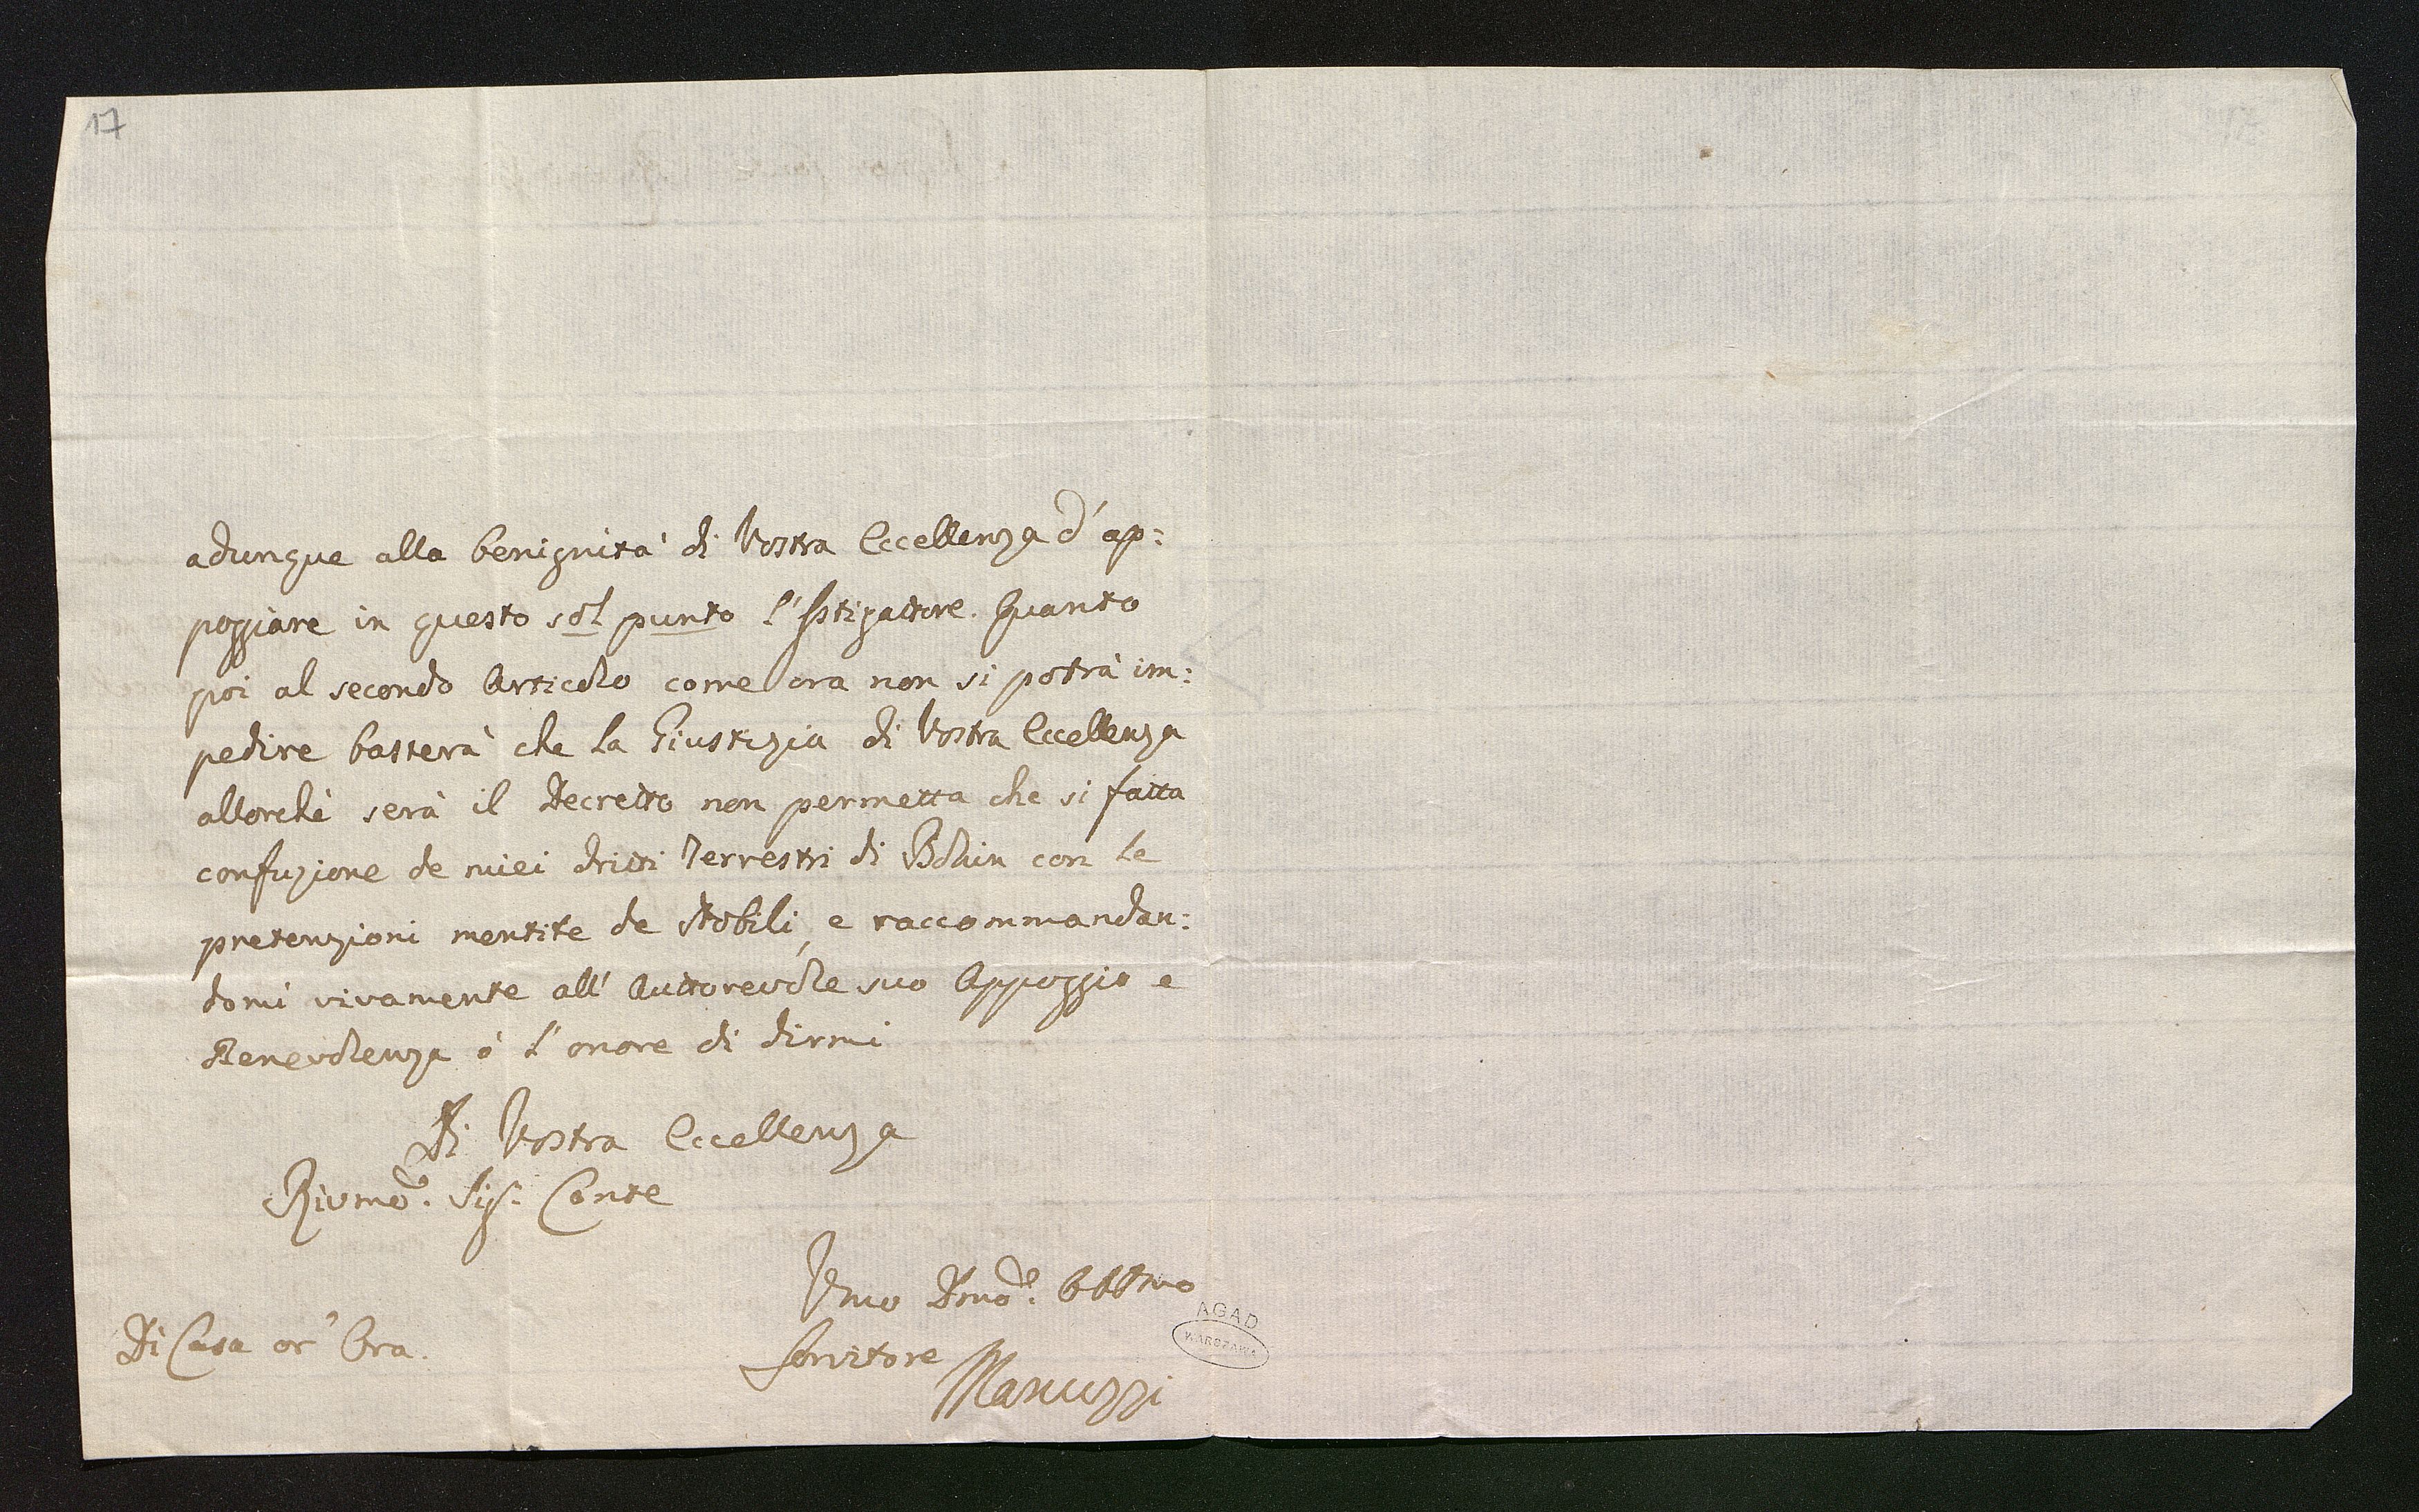 17
adunque alla benignità di Vostra Eccellenza d'ap:
poggiare in questo sol punto l'Istigattore. Quanto
poi al secondo Articolo come ora non si potrà im:
pedire basterà che la Giustizia di Vostra Eccellenza
allorchè serà il Decretto non permetta che si fatta
confuzione de miei dritti Terrestri di con le
pretenzioni mentite de Nobili, e raccommandan:
domi vivamente all' Auttorevole suo Appoggio e
Benevolenza ò l'onore di dirmi
Di Vostra Eccellenza
Sigr. Conte
Servitore
Di Casa or' Ora.
Manuzzi
AGAD
WARSZAWA